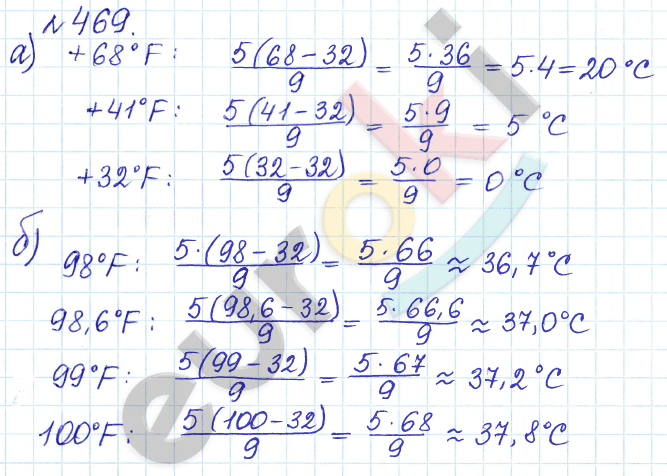 №469.
а) +68°F: 5(68-32)/9 = 5·36/9 = 5·4=20°C
+41°F: 5(41-32)/9 = 5·9/9 = 5°C
+32°F: 5(32-32)/9 = 5·0/9 = 0°C
б) 98°F: 5·(98-32)/9 = 5·66/9 ≈ 36,7°C
98,6°F: 5(98,6-32)/9 = 5·66,6/9 ≈ 37,0°C
99°F: 5(99-32)/9 = 5·67/9 ≈ 37,2°C
100°F: 5(100-32)/9 = 5·68/9 ≈ 37,8°C
euroki